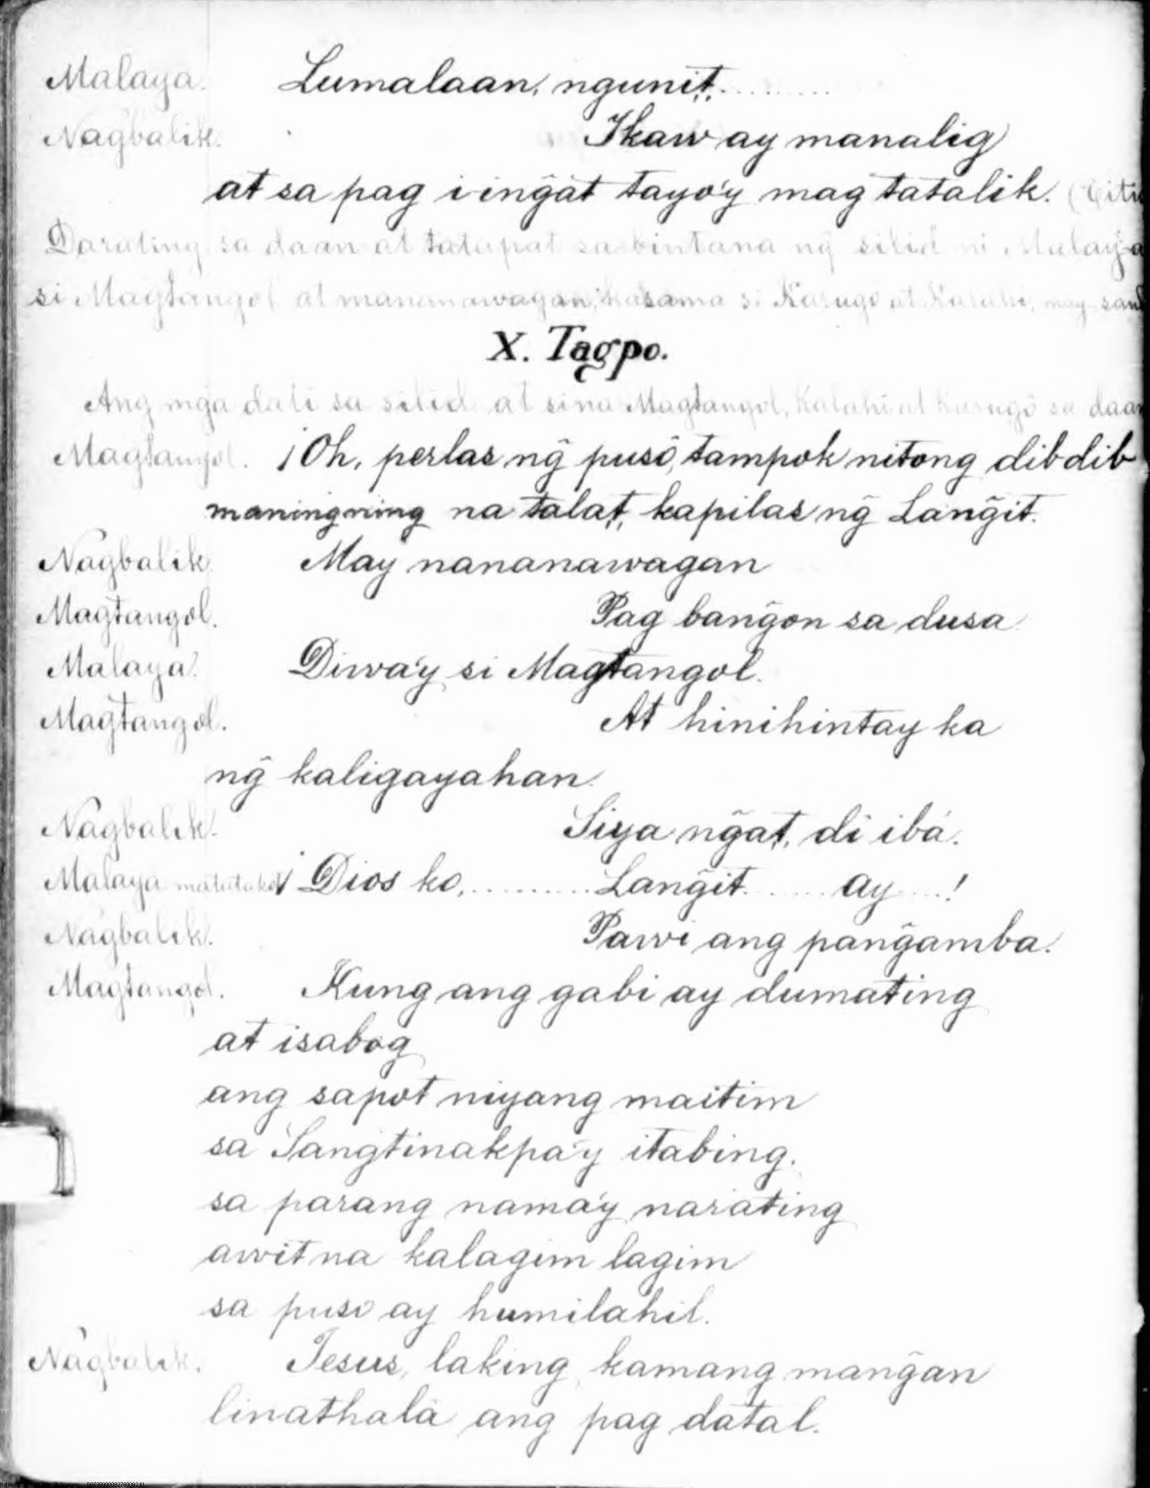 Malaya. Lumalaan, ngunit, .........
Nagbalik. Ikaw ay manalig
at sa pag iing̃at tayo'y mag tatalik. (Titi
Darating sa daan at tatapat sa bintana ng̃ silid ni Malaya
si Magtangol at mananawagan, kasama si Kasugo at Kalahi, may
X. Tagpo.
Ang mga dati sa silid at sina Magtangol, Kalahi at Kasugo sa daan
Magtangol. ¡Oh, perlas ng̃ puso, tampok nitong dibdib
maningning na tala't, kapilas ng̃ Lang̃it.
Nagbalik May nananawagan
Magtangol. Pag bang̃on sa dusa
Malaya. Diwa'y si Magtangol.
Magtangol. At hinihintay ka
ng̃ kaligayahan.
Nagbalik. Siya ng̃a't, di ibá.
Malaya matatakot ¡Dios ko, ......... Lang̃it ...... ay ....!
Nagbalik. Pawi ang pang̃amba.
Magtangol. Kung ang gabi ay dumating
at isabog
ang sapot niyang maitim
sa Sangtinakpa'y itabing.
sa parang nama'y narating
awit na kalagim lagim
sa puso ay humilahil.
Nagbalik. Jesus, laking kamang mang̃an
linathala ang pag datal.